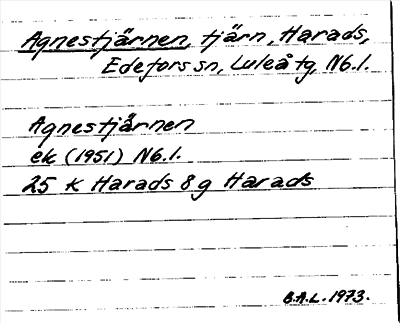 Agnestjärnen, tjärn, Harads,
Edefors sn, Luleå tg, Nb.l.
Agnestjärnen
ek (1951) Nb.l.
25 K Harads 8g Harads
B.A.L. 1973.